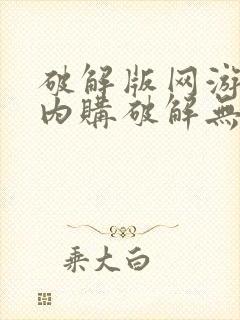 破解版网游
内購破解無
乘大白